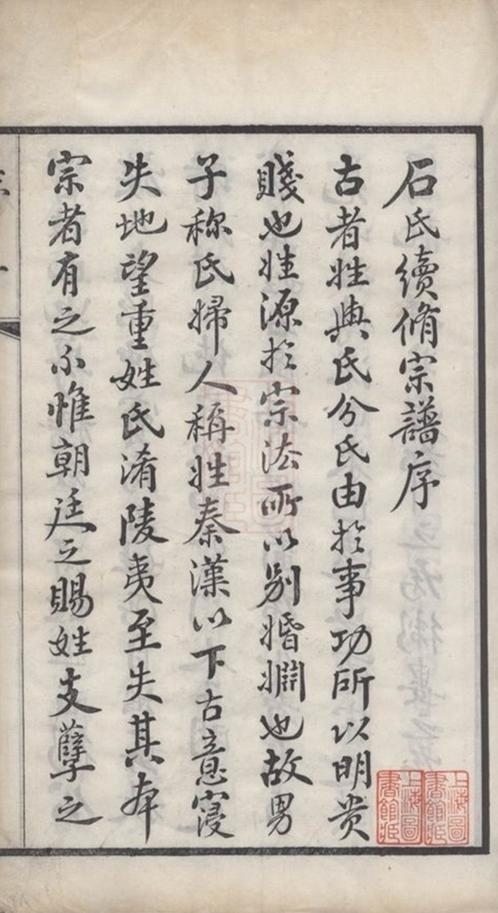 石氏續脩宗譜序
古者姓與氏分氏由於事功所以明貴
賤也姓源於宗法所以别婚姻也故男
子称氏婦人稱姓秦漢以下古意寖
失地望重姓氏淆陵夷至失其本
宗者有之不惟朝廷之賜姓支孽之
上海圖書館藏
上海圖書館藏